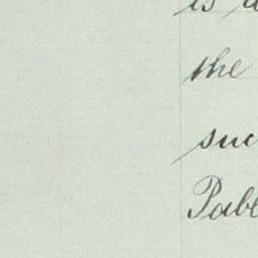 is
the
suc
Pabl